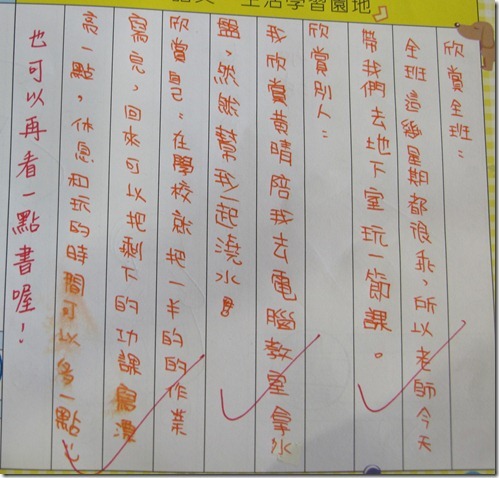 生活學習園地
欣賞全班：
全班這幾星期都很乖，所以老師今天
帶我們去地下室玩一節課。
欣賞別人：
我欣賞黃晴陪我去電腦教室拿水
盤，然然幫我一起澆水！
欣賞自己：在學校就把一半的的作業
寫完，回來可以把剩下的功課寫漂
亮一點，休息和玩的時間可以多一點
也可以再看一點書喔！